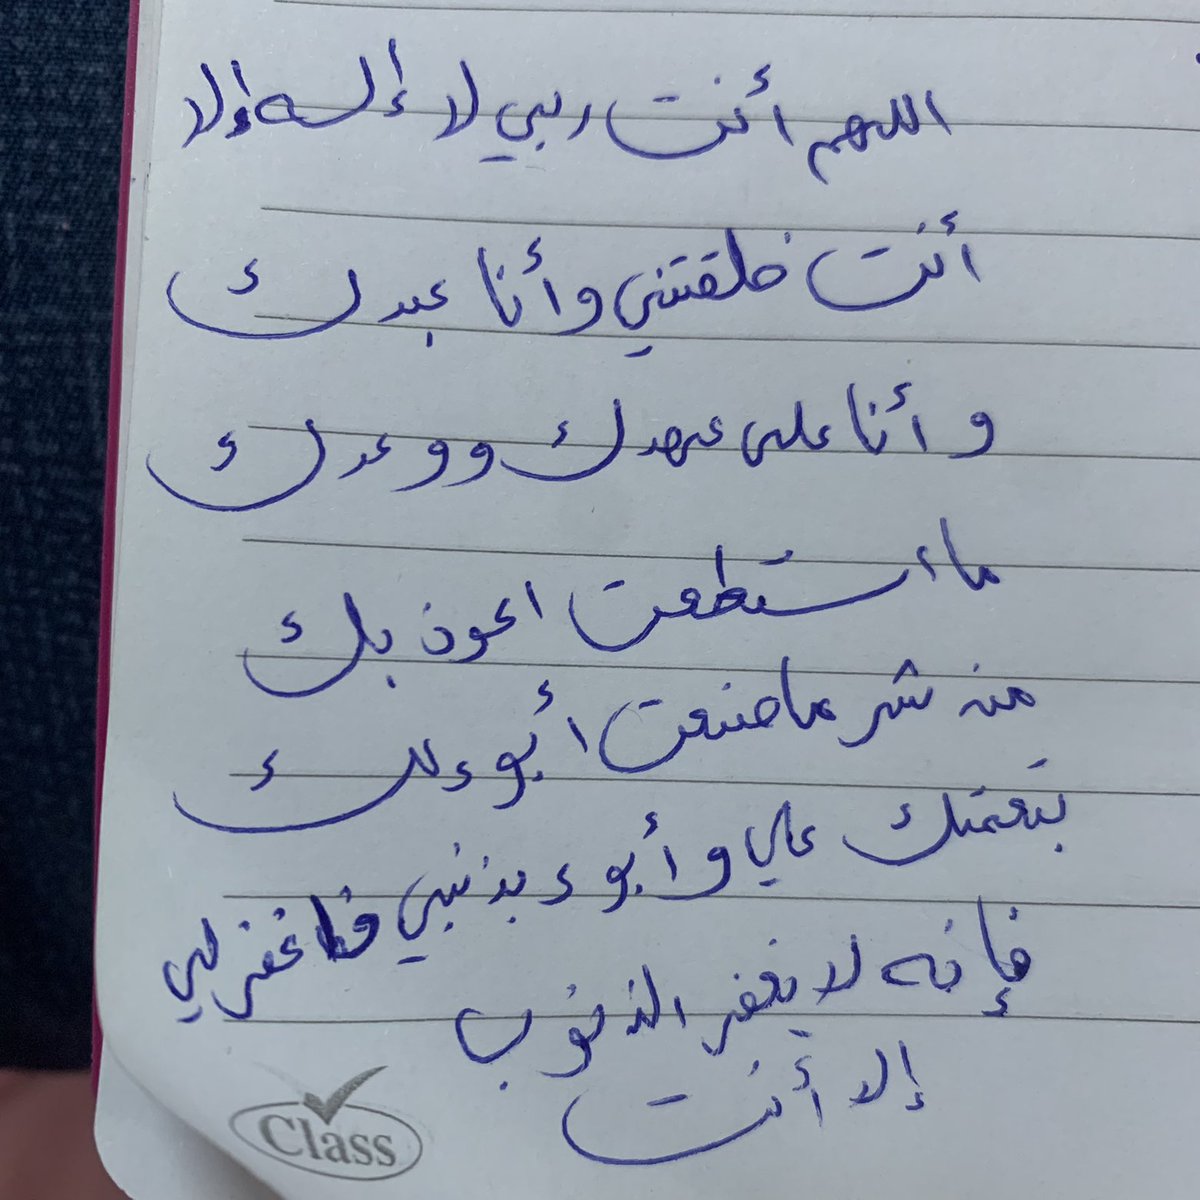 اللهم أنت ربي لا إله إلا
أنت خلقتني وأنا عبدك
وأنا على عهدك ووعدك
ما استطعت اعوذ بك
من شر ما صنعت أبوء لك
بنعمتك علي وأبوء بذنبي فاغفر لي
فإنه لا يغفر الذنوب
إلا أنت
Class